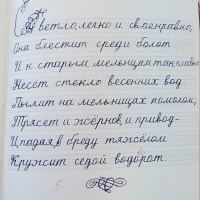 Светло, легко и своенравно,
Она блестит среди болот
И к старым мельницам так плавно
Несёт стекло весенних вод
Пылит на мельницах помолом,
Трясёт и жёрнов, и привод-
И падая, в бреду тяжёлом
Кружит седой водорот